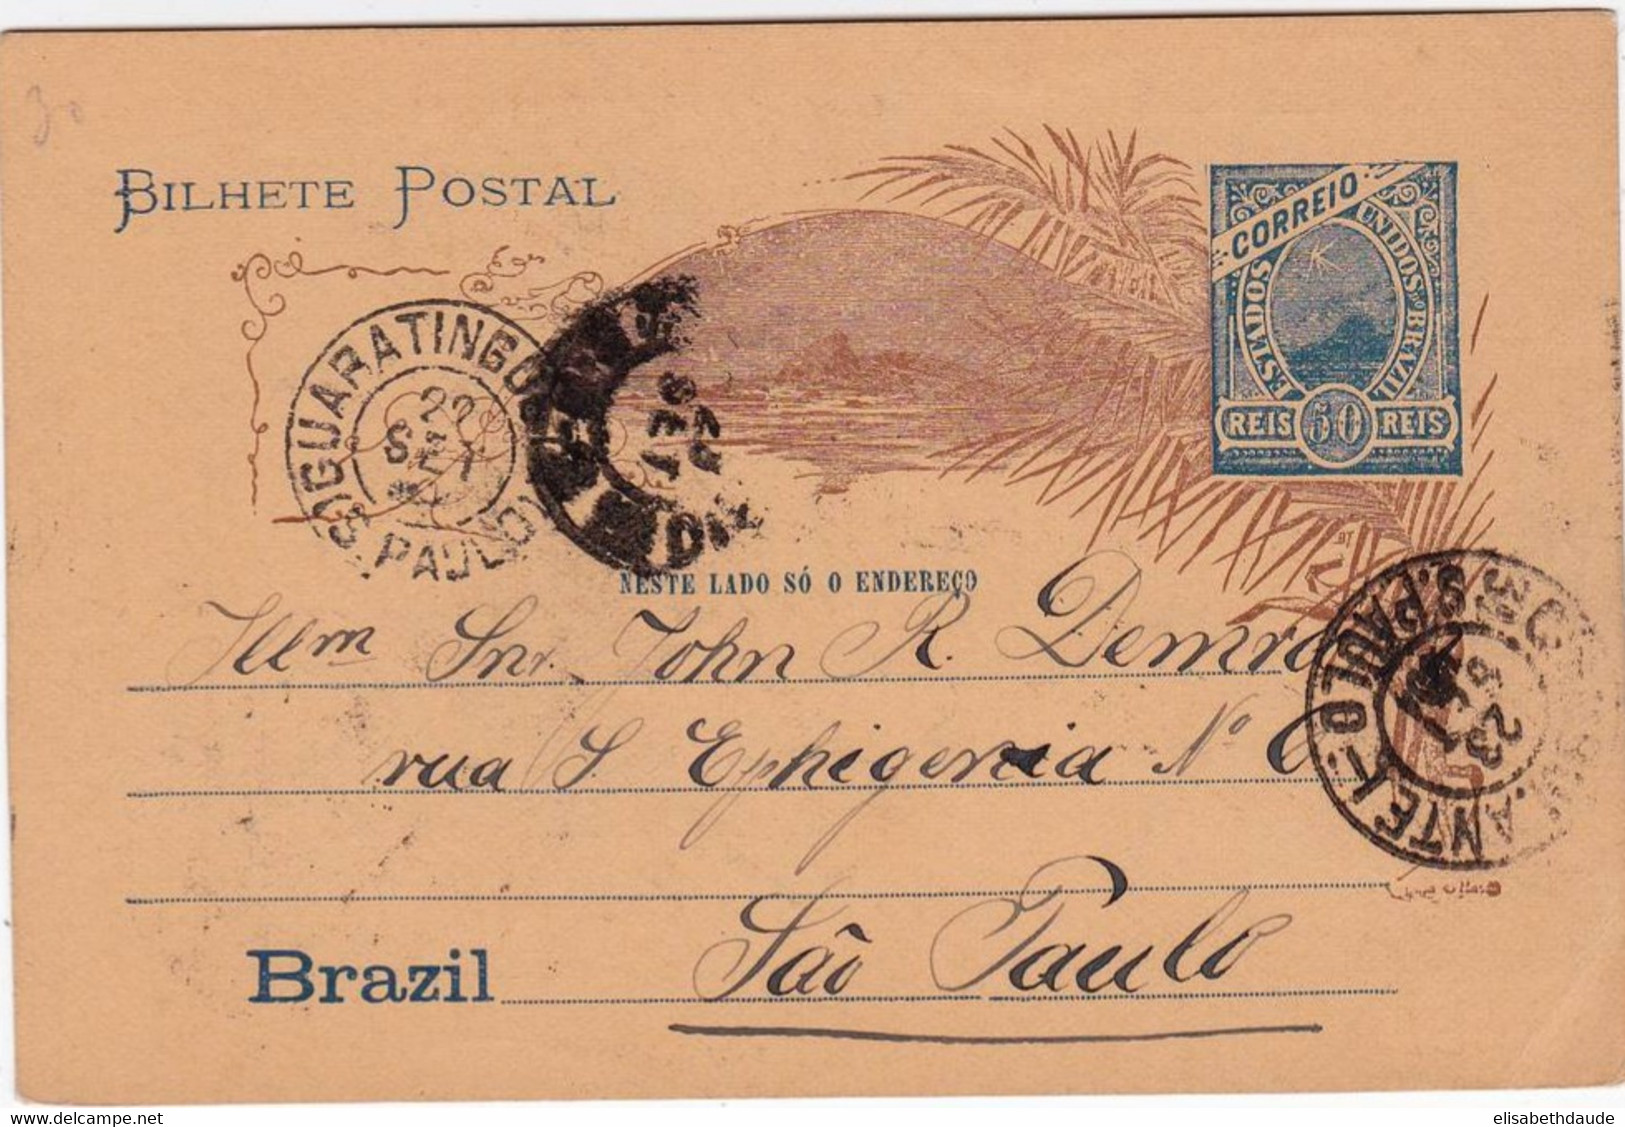 30
BILHETE POSTAL
CORREIO
ESTADOS UNIDOS DO BRAZIL
REIS 50 REIS
GUARATINGU
22
SET
(S. PAULO)
NESTE LADO SÓ O ENDEREÇO
Illm Snr. John R.
rua S Ephigenia Nº
S. PAULO
23
São Paulo
Brazil
delcampe.net
elisabethdaude